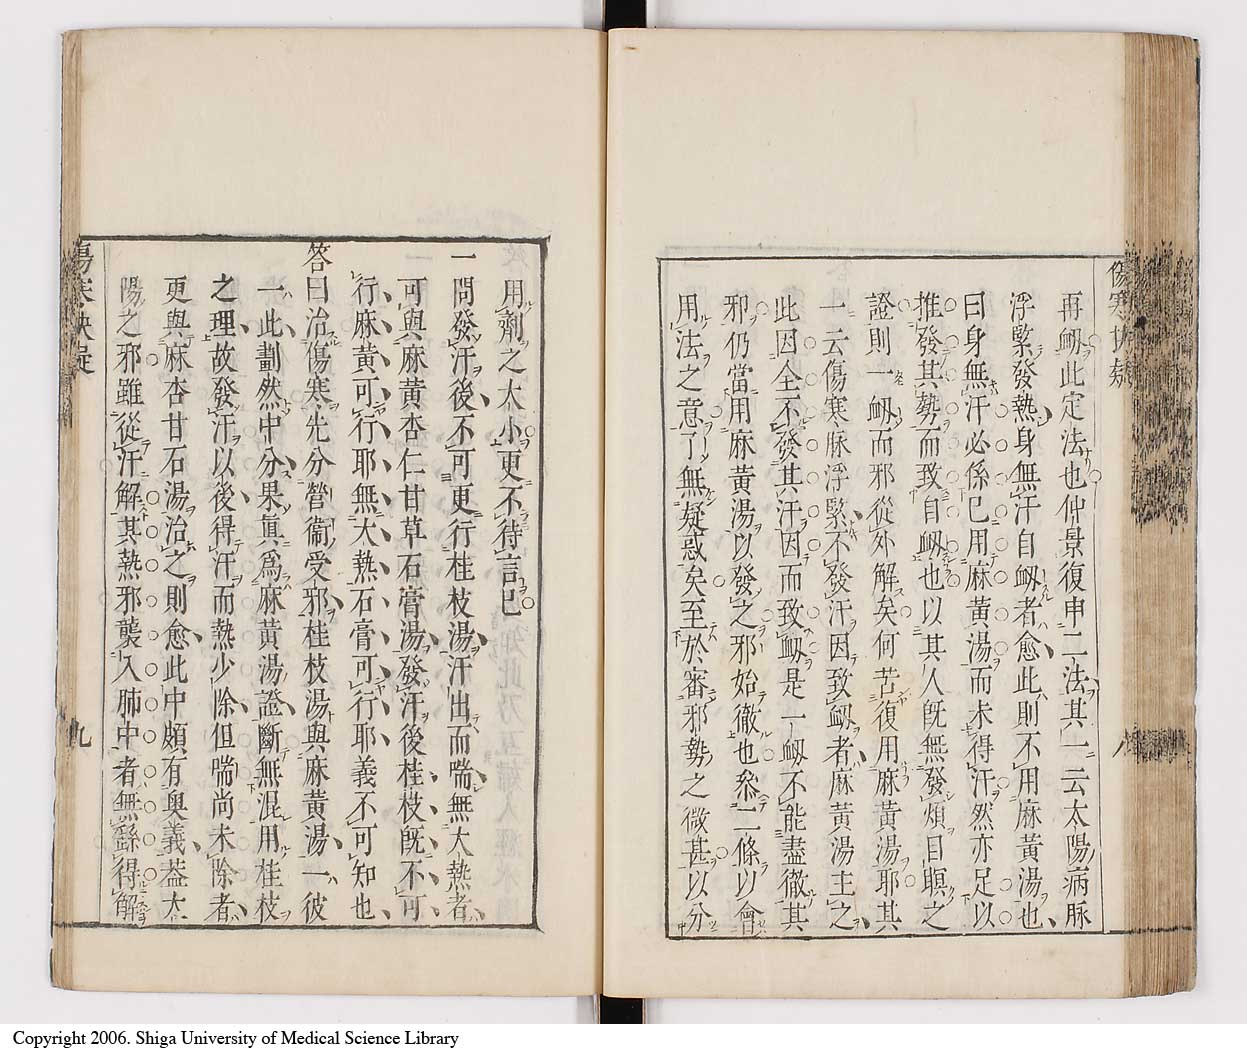 傷寒抉疑
八
再衂此定法也仲景復申二法其一云太陽病脉
浮緊發熱身無汗自衂者愈此則不用麻黃湯也
曰身無汗必係已用麻黃湯而未得汗然亦足以
推發其勢而致自衂也以其人旣無發煩目瞑之
證則一衂而邪從外解矣何苦復用麻黃湯耶其
一云傷寒脉浮緊不發汗因致衂者麻黃湯主之
此因全不發其汗因而致衂是一衂不能盡徹其
邪仍當用麻黃湯以發之邪始徹也叅二條以會
用法之意了無疑惑矣至於審邪勢之微甚以分
用劑之大小更不待言已
一問發汗後不可更行桂枝湯汗出而喘無大熱者
可與麻黃杏仁甘草石膏湯發汗後桂枝旣不可
行麻黃可行耶無大熱石膏可行耶義不可知也
答曰治傷寒先分營衞受邪桂枝湯與麻黃湯一彼
一此劃然中分果眞爲麻黃湯證斷無混用桂枝
之理故發汗以後得汗而熱少除但喘尚未除者
更與麻杏甘石湯治之則愈此中頗有奥義葢太
陽之邪雖從汗解其熱邪襲入肺中者無繇得解
傷寒抉疑
九
Copyright 2006. Shiga University of Medical Science Library